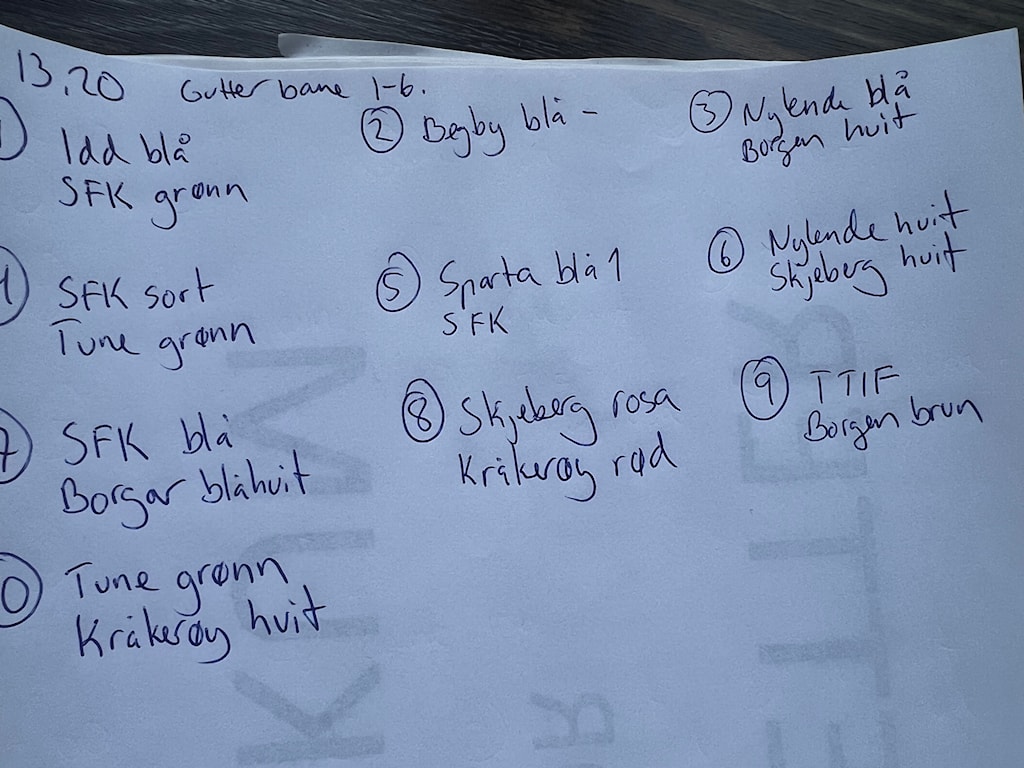 13.20 Gutter bane 1-6.
1 Idd blå
SFK grønn
2 Begby blå -
3 Nylende blå
Borgen hvit
SFK sort
Tune grønn
5 Sparta blå 1
SFK
6 Nylende hvit
Skjeberg hvit
7 SFK blå
Borgar blåhvit
8 Skjeberg rosa
Kråkerøy rød
9 TTIF
Borgen brun
0 Tune grønn
Kråkerøy hvit